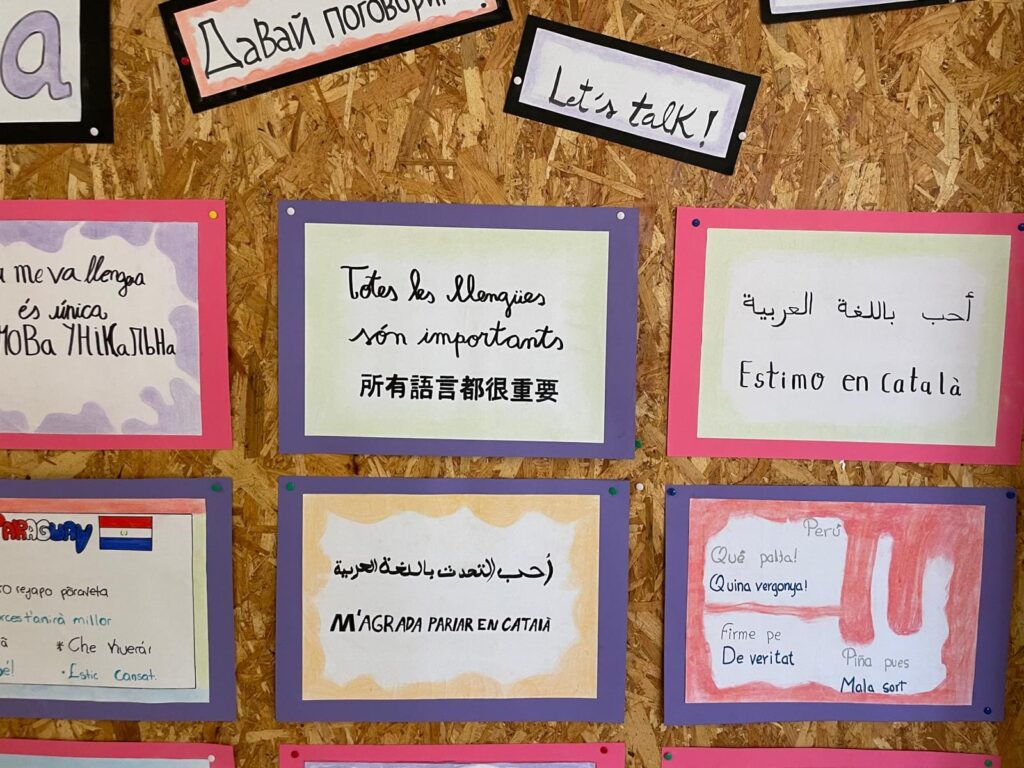 a
Давай поговорим
Let's talk!
me va llengua
és única
МОВА УНІКАЛЬНА
Totes les llengües
són importants
所有語言都很重要
أحب باللغة العربية
Estimo en català
PARAGUAY
rejapo pōraveta
t'anirà millor
* Che Kuerái
• Estic cansat.
أحب التحدث باللغة العربية
M'AGRADA PARLAR EN CATALÀ
Perú
Qué palta!
Quina vergonya!
Firme pe
De veritat
Piña pues
Mala sort